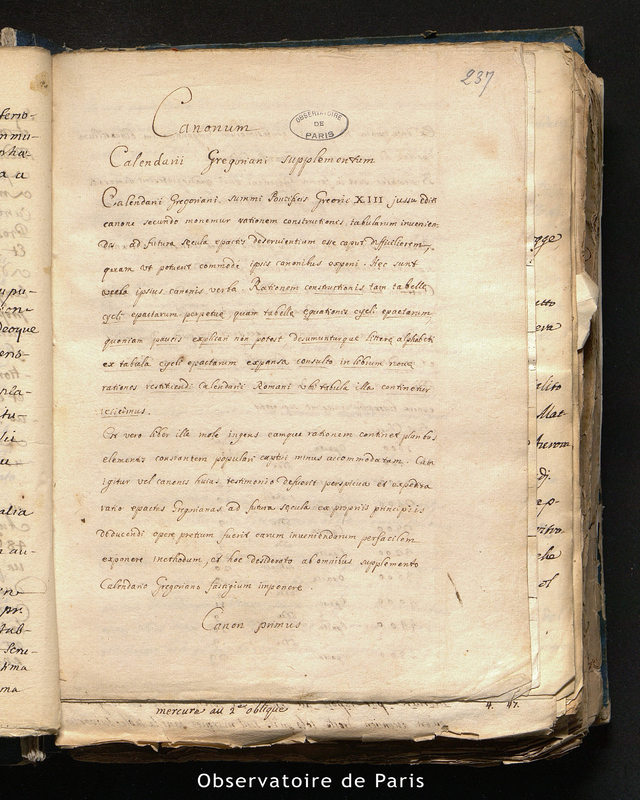 237
Canonum
OBSERVATOIRE
DE
PARIS
Calendarii Gregoriani supplementum
Calendarii Gregoriani, summi Pontificis Greorii XIII jussu editi
canone secundo monemur rationem constructionis tabularum invenien
dis ad futura sęcula epactis deservientium esse captu difficiliorem,
quam ut potuerit commode ipsis canonibus exponi. Hęc sunt
ipsius canonis verba. Rationem constructionis tam tabellę
cycli epactarum perpetuę quam tabellę equationis cycli epactarum
quoniam paucis explicari non potest desumunturque litterę alphabeti
ex tabula cycli epactarum expansa consulto in librum novę
rationis restituendi Calendarii Romani ubi tabula illa continetur
reiicimus.
At vero liber ille mole ingens eamque rationem continet pluribus
elementis constantem populari captui minus accommodatam. Cum
igitur vel canonis huius testimonio defuerit perspicua et expedita
ratio epactas Gregorianas ad futura sęcula ex propriis principiis
deducendi operę pretium fuerit earum inveniendarum perfacilem
exponere methodum, et hoc desiderato ab omnibus supplemento
Calendario Gregoriano fastigium imponere.
Canon primus
mercure au 2 oblique
4. 47.
Observatoire de Paris